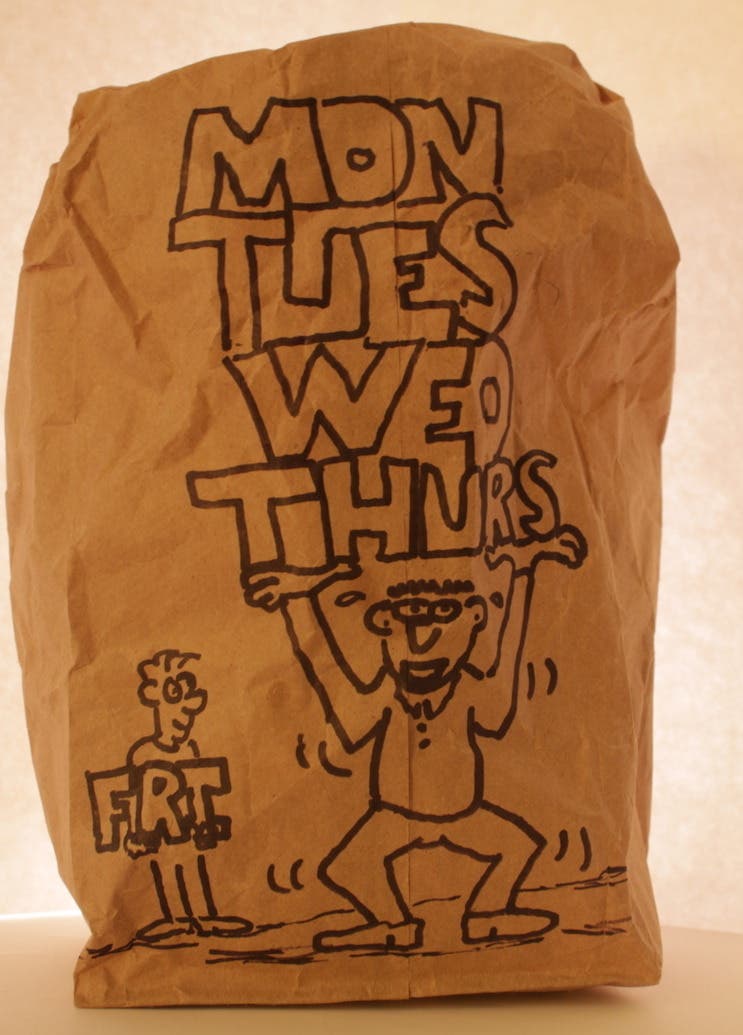 MON
TUES
WED
THURS.
FRI.